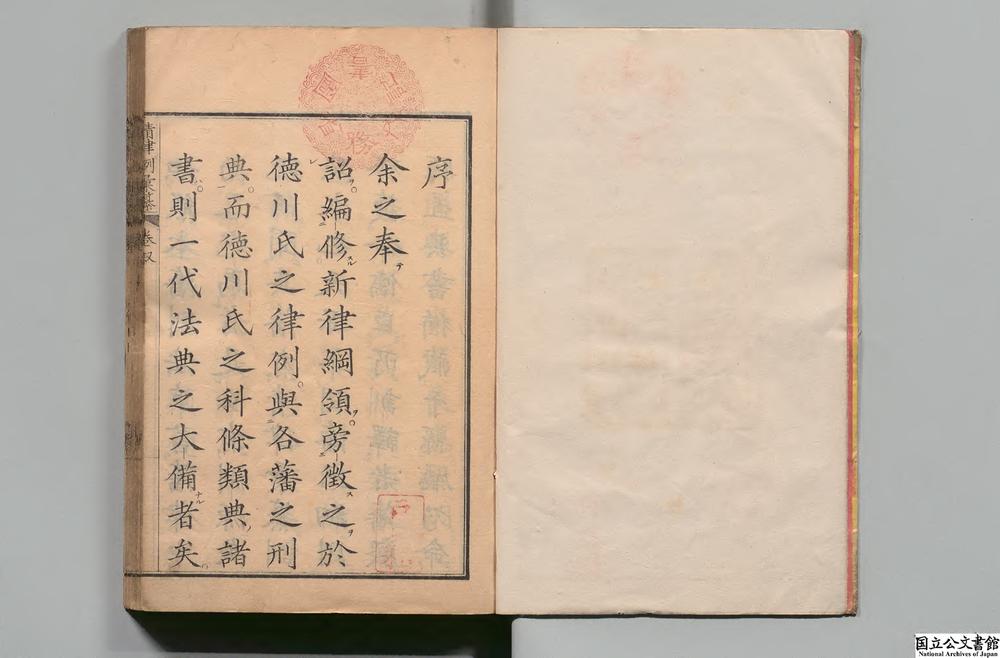 序
余之奉テ
詔ヲ編修スル新律綱領ヲ旁徴ス之ヲ於
徳川氏之律例與各藩之刑
典而徳川氏之科條類典諸
書則一代法典之大備ナル者矣
律例彙纂
国立公文書館
National Archives of Japan